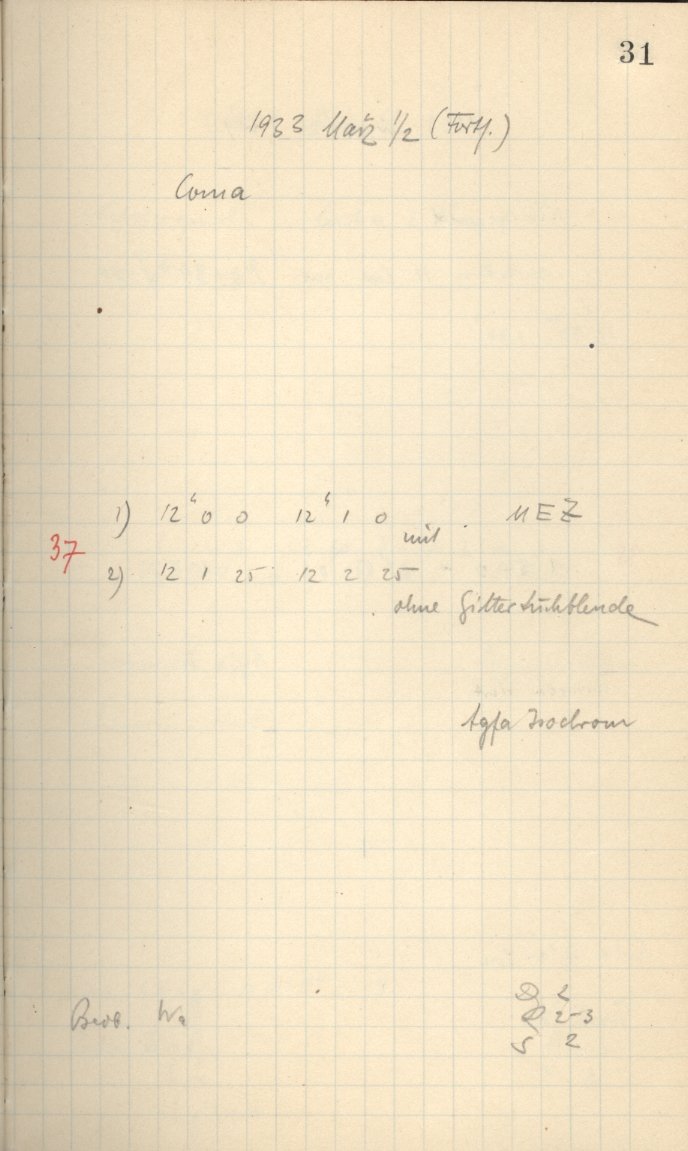 31
1933 März 1/2 (Forts.)
Coma
1) 12ʰ 0 0 12ʰ 1 0 MEZ
mit
37
2) 12 1 25 12 2 25
ohne Gitter
Agfa Isochrom
Beob. Wa
D 2
R 2-3
S 2